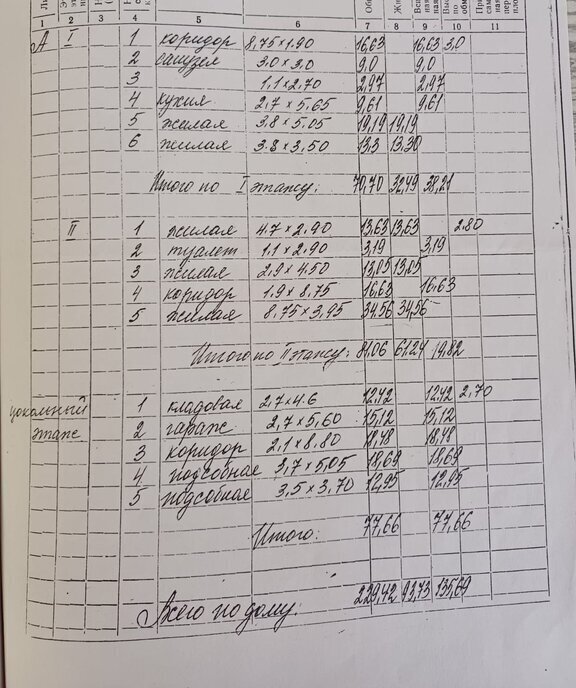 1 2 3 4 5 6 7 8 9 10 11
А I 1 коридор 8,75×1.90 16,63 16,63 3,0
2 санузел 3.0×3.0 9,0 9,0
3 1,1×2.70 2,97 2,97
4 кухня 2,7×5,65 9,61 9,61
5 жилая 3.8×5.05 19,19 19,19
6 жилая 3.8×3,50 13,3 13,30
Итого по I этажу: 70,70 32,49 38,21
II 1 жилая 4.7×2.90 13,63 13,63 2.80
2 туалет 1.1×2.90 3,19 3,19
3 жилая 2,9×4.50 13,05 13,05
4 коридор 1,9×8,75 16,63 16,63
5 жилая 8.75×3,95 34,56 34,56
Итого по II этажу: 81,06 61.24 19,82
цокольный 1 кладовая 2,7×4.6 12,42 12,42 2,70
этаж 2 гараж 2,7×5,60 15,12 15,12
3 коридор 2,1×8.80 18,48 18,48
4 подсобная 3,7×5,05 18,69 18,69
5 подсобная 3,5×3,70 12,95 12,95
Итого: 77,66 77,66
Всего по дому: 229,42 93,73 135,69